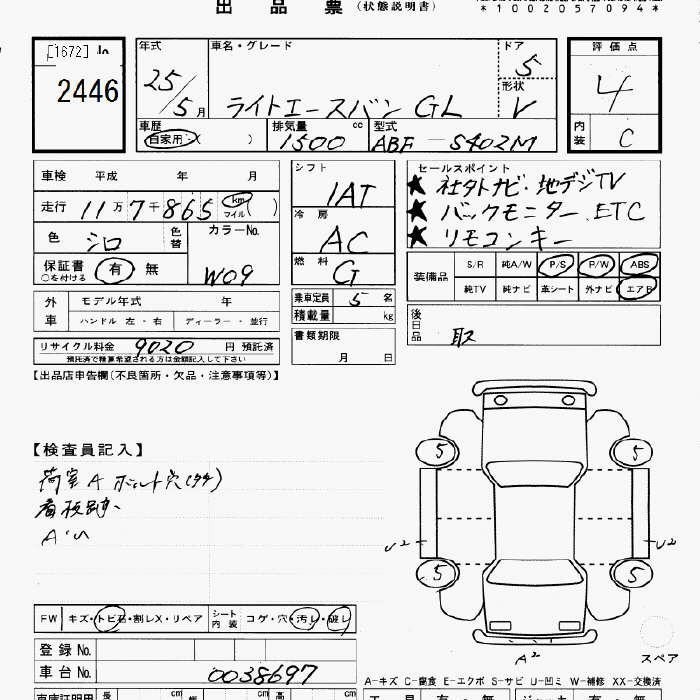 出品票(状態説明書)
*1002057094*
[1672]
2446
年式
25/5月
車名・グレード
ライトエースバン GL
ドア
5
形状
V
評価点
4
内装
C
車歴
自家用・( )
排気量 cc
1500
型式
ABF-S402M
車検 平成 年 月
走行 11万7千865 km マイル( )
色
シロ
色替
カラーNo.
W09
保証書 有 無
○を付ける
シフト
IAT
冷房
AC
燃料
G
乗車定員 5 名
積載量 kg
書類期限
月 日
セールスポイント
★ 社外ナビ・地デジTV
★ バックモニター ETC
★ リモコンキー
装備品
S/R 純A/W P/S P/W ABS
純TV 純ナビ 革シート 外ナビ エアB
後日品
取
外車
モデル年式 年
ハンドル 左・右 ディーラー・並行
リサイクル料金 9020 円 預託済
預託済で精算希望される方は金額記入して下さい
【出品店申告欄(不良箇所・欠品・注意事項等)】
【検査員記入】
荷室A
看板跡、
5 5
U2 U2
5 5
A2
スペア
FW キズ・トビ石・割レX・リペア
シート内装 コゲ・穴・汚レ・破レ
登録No.
車台No. 0038697
A-キズ C-腐食 E-エクボ S-サビ U-凹ミ W-補修 XX-交換済